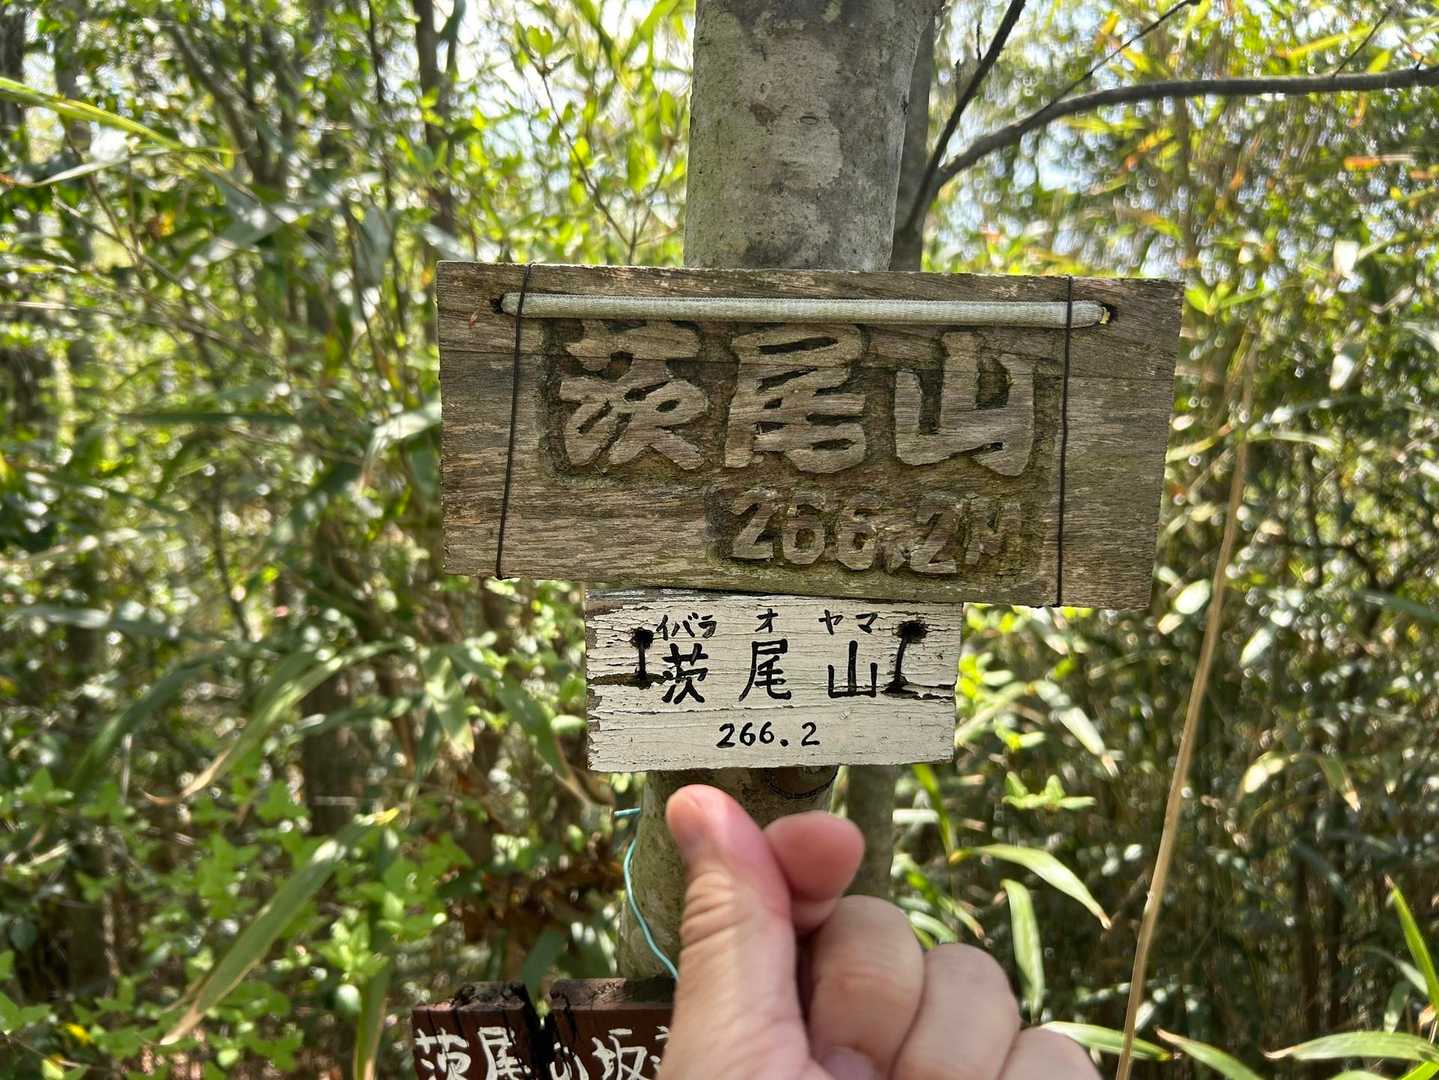 茨尾山
266.2M
イバラ オ ヤマ
茨 尾 山
266.2
茨尾
坂